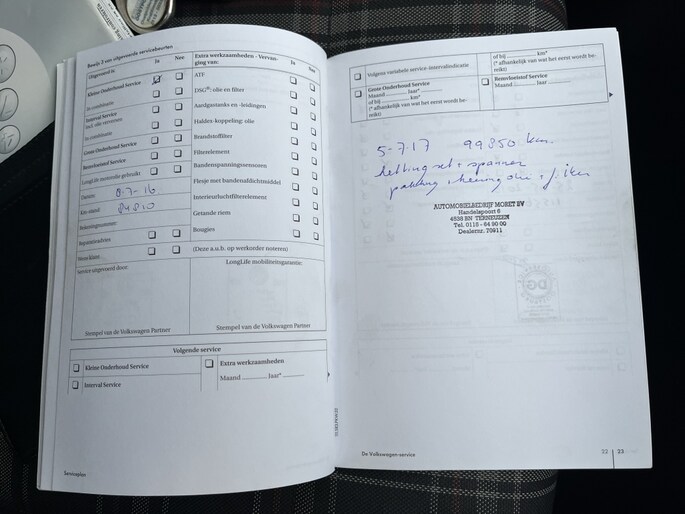 Bewijs 3 van uitgevoerde servicebeurten
Uitgevoerd is:
Ja
Nee
Kleine Onderhoud Service
In combinatie
Interval Service
incl. olie verversen
In combinatie
Grote Onderhoud Service
Remvloeistof Service
LongLife motorolie gebruikt
Datum:
8-7-16
Km-stand:
84810
Rekeningnummer:
Reparatieadvies
Wens klant:
Service uitgevoerd door:
Stempel van de Volkswagen Partner
Extra werkzaamheden - Vervanging van:
Ja
Nee
ATF
DSG®: olie en filter
Aardgastanks en -leidingen
Haldex-koppeling: olie
Brandstoffilter
Filterelement
Bandenspanningssensoren
Flesje met bandenafdichtmiddel
Interieurluchtfilterelement
Getande riem
Bougies
(Deze a.u.b. op werkorder noteren)
LongLife mobiliteitsgarantie:
Stempel van de Volkswagen Partner
Volgende service
Kleine Onderhoud Service
Interval Service
Extra werkzaamheden
Maand jaar*
Serviceplan
Volgens variabele service-intervalindicatie
Grote Onderhoud Service
Maand jaar*
of bij km*
(* afhankelijk van wat het eerst wordt bereikt)
of bij km*
(* afhankelijk van wat het eerst wordt bereikt)
Remvloeistof Service
Maand jaar
5-7-17 99350 km.
kettingset + spanner
pakking
AUTOMOBIELBEDRIJF MOBET BV
Handelspoort 6
4538 BN TERNEUZEN
Tel. 0115 - 64 90 00
Dealernr. 70911
De Volkswagen-service
22 | 23